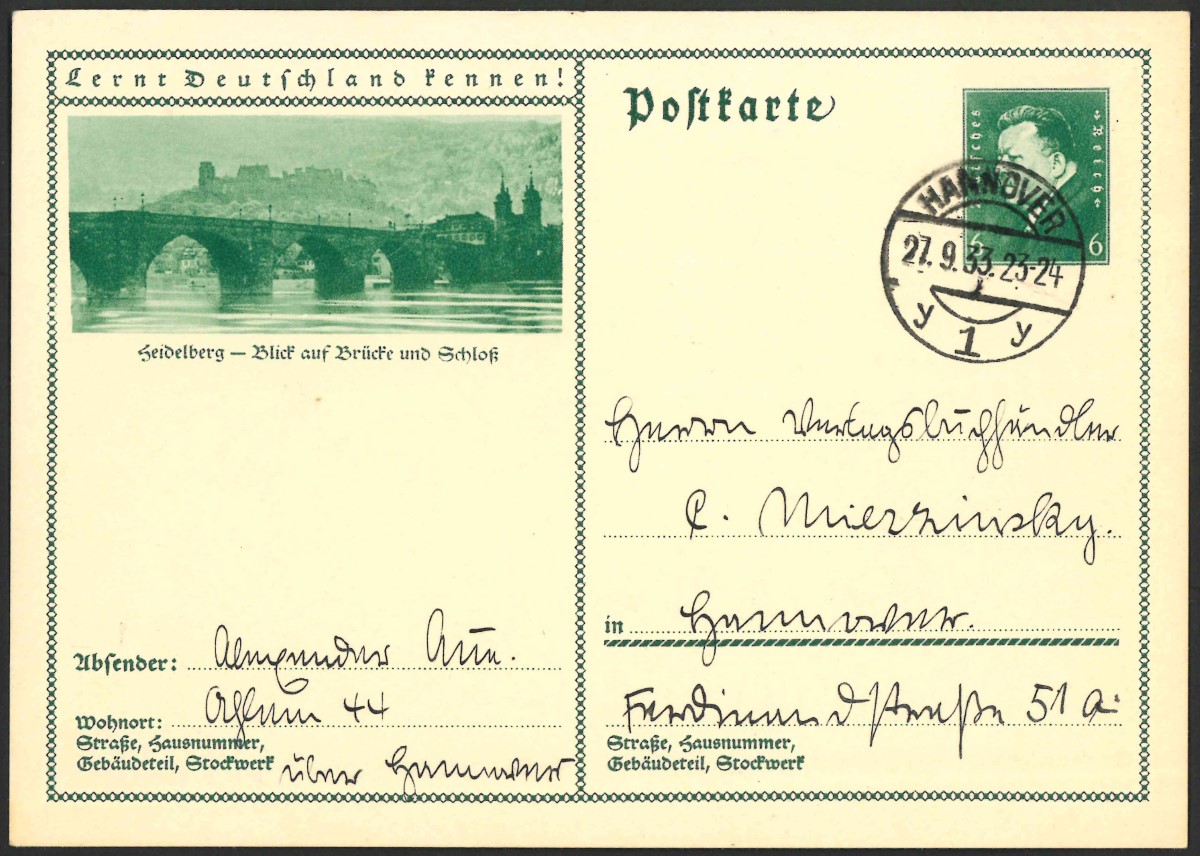 Lernt Deutschland kennen!
Heidelberg — Blick auf Brücke und Schloß
Absender: Alexander Aue.
Wohnort: Ahlem 44
Straße, Hausnummer,
Gebäudeteil, Stockwerk über Hannover
Postkarte
Deutsches Reich
6 6
HANNOVER
27.9.33.23-24
y 1 y
Herrn Verlagsbuchhändler
C. Mierzinsky.
in Hannover.
Ferdinandstraße 51 a.
Straße, Hausnummer,
Gebäudeteil, Stockwerk